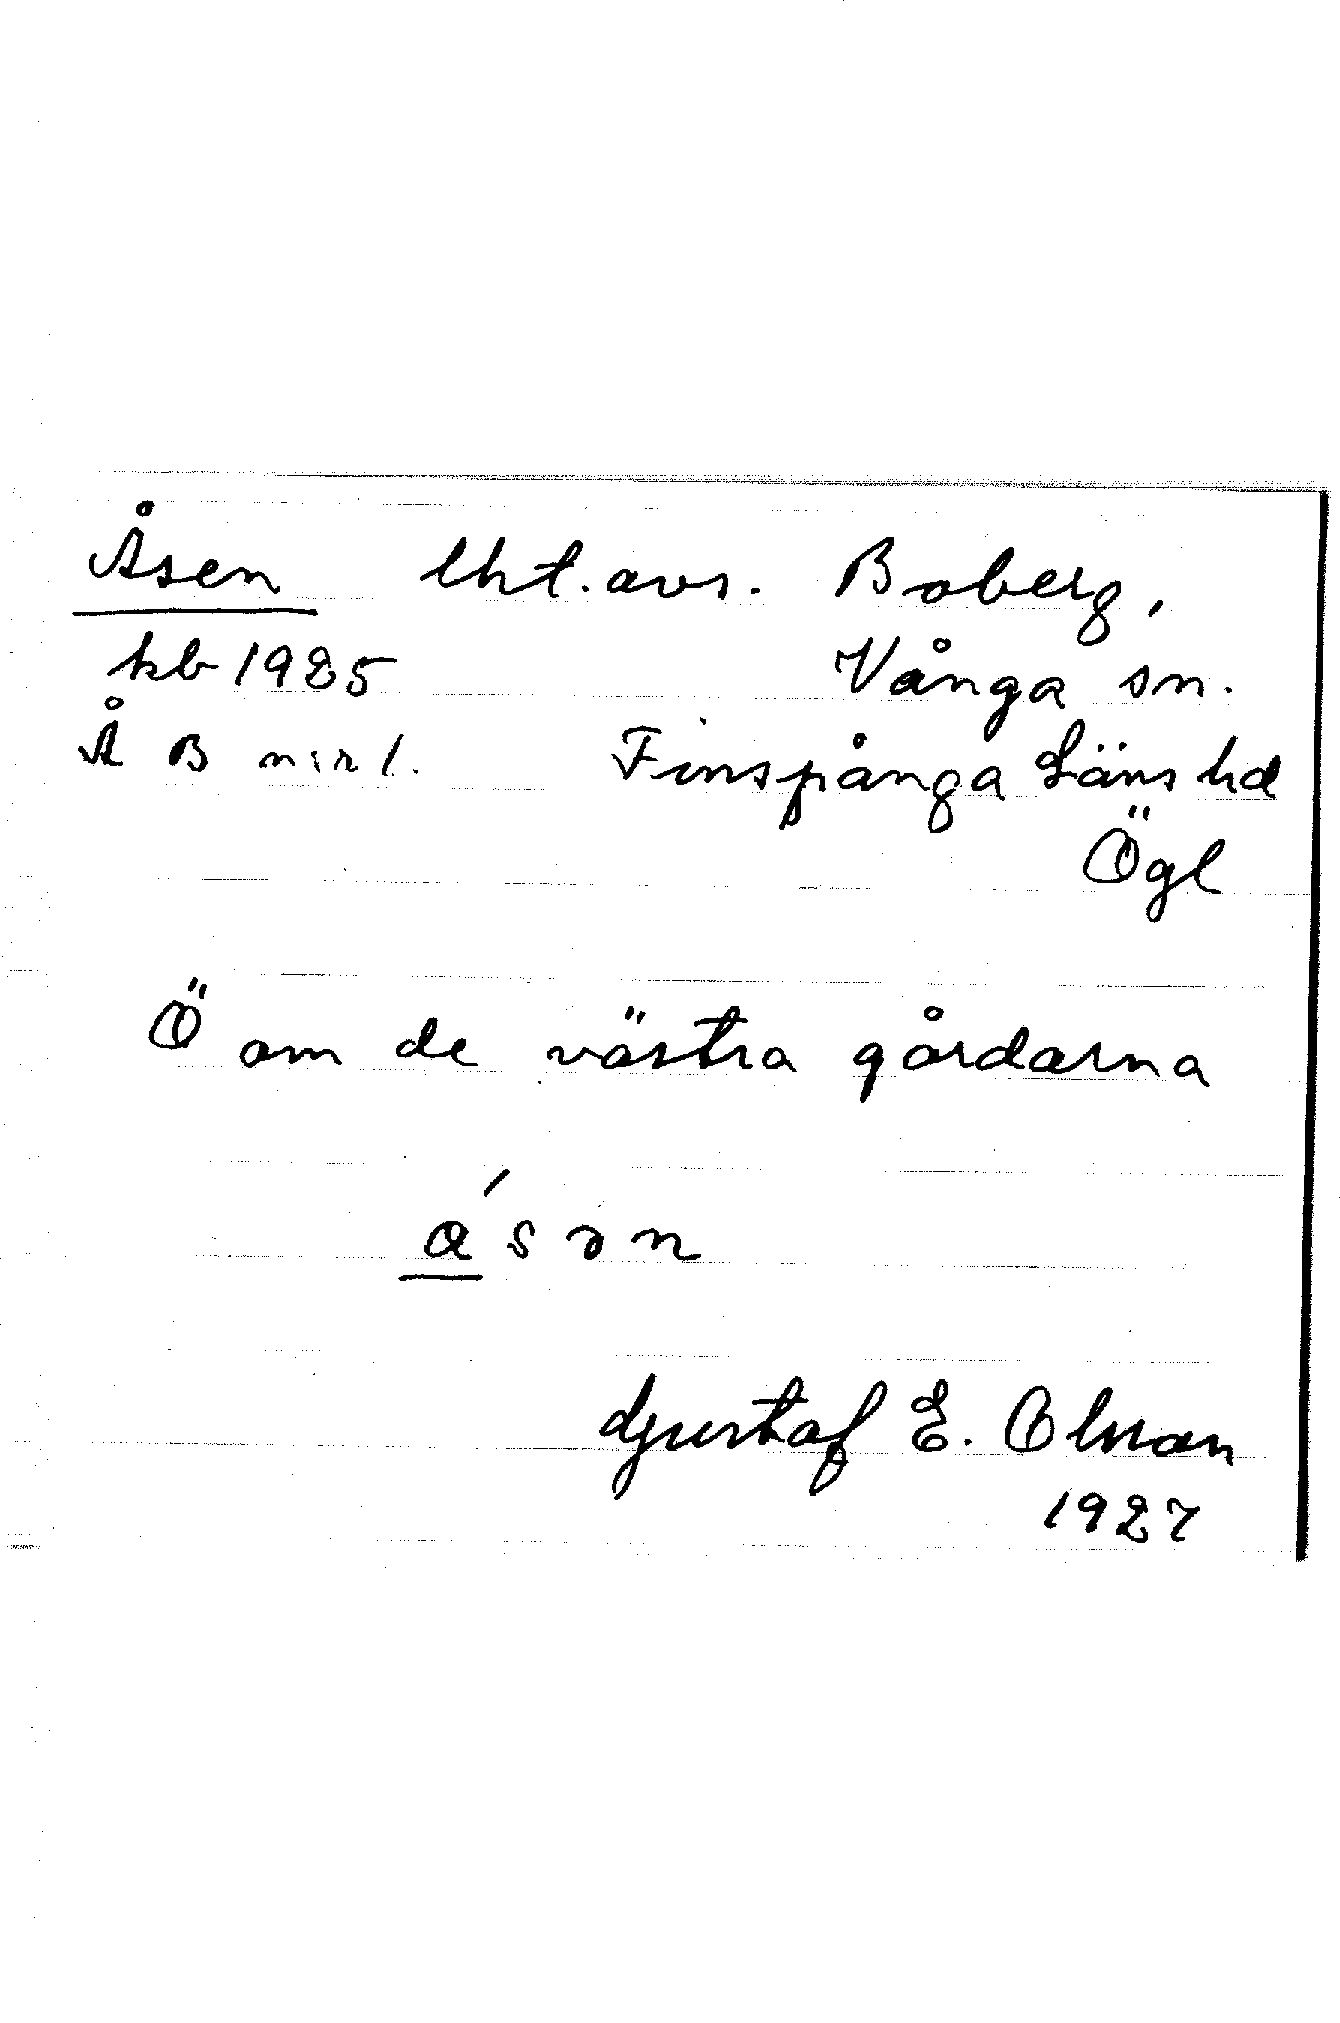 Åsen lht. avs. Boberg,
kb 1925 Vånga sn.
Å B Finspånga Läns hd
Ögl
Ö om de västra gårdarna
a´sən
Gustaf E. Olsson
1927